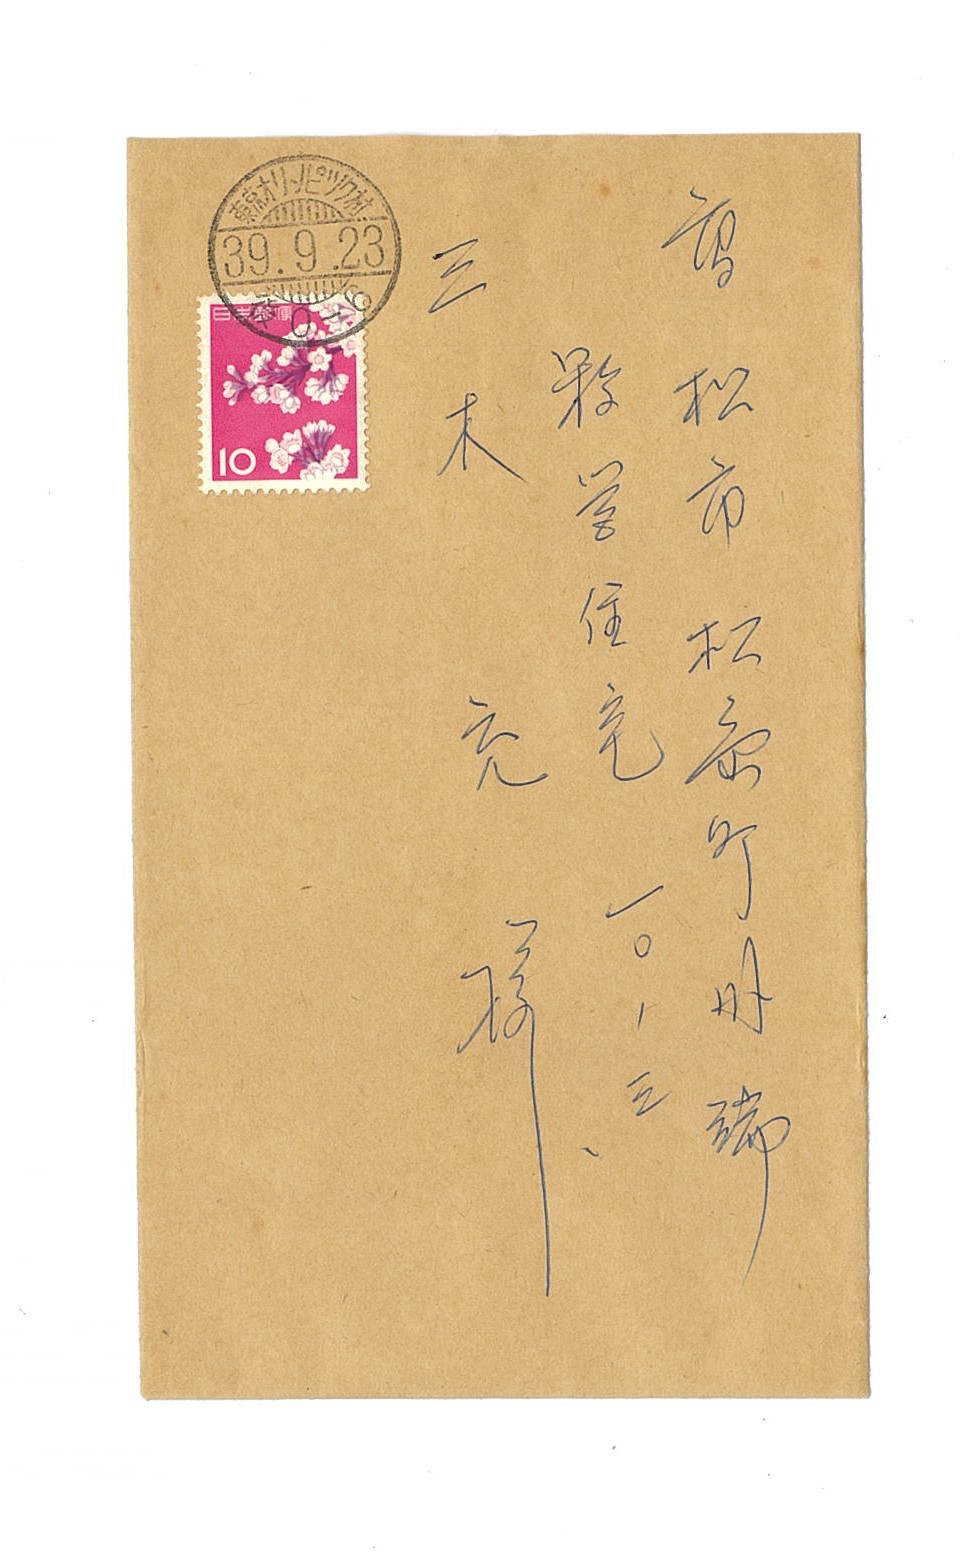 東京オリンピツク村
39.9.23
日本郵便
10
高松市松 町
縣営住宅 一〇ノ三
三木 亮 様